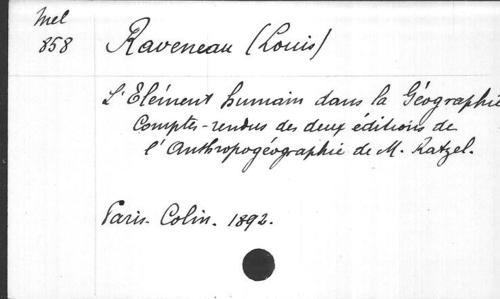 Mel
858
Raveneau (Louis)
L'Elément humain dans la Géographie
Comptes-rendus des deux éditions de
l'Anthropogéographie de M. Ratzel.
Paris. Colin. 1892.